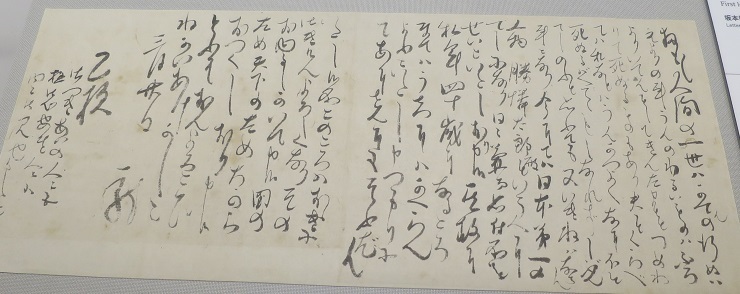 扨も〻人間の一世ハがてんの行ぬハ
元よりの事うんのわるいものハふろ
よりいでんとしてきんたまをつめわ
りて死ぬるものもあり夫とくらべ
てハ私などハうんがつよくなにほど
死ぬるバへでゝもしなれずじぶん
でしのふと思ふても又いきねバならん
事ニなり今にてハ日本第一の
人物勝憐太郎殿という人に
でしになり日々兼而思付所を
せいといたしおり申候其故に
私年四十歳になるころ
までハうちにハかへらん
よふニいたし申つもりに
てあにさんにもそふだん
いたし候所このごろハおゝきに
御きげんよろしくなりその
おゆるしがいで申候国の
ため天下のためちから
おつくしおり申候
どふぞおんよろこび
ねがいあげかしこ
三月廿日
龍
乙様
御つきあいの人ニも
極御心安き人ニハ
内々御見せかしこ
First
坂本
Letter